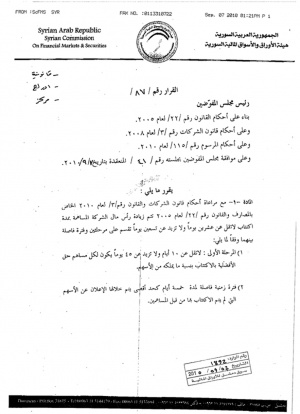 FROM :SCFMS SYR
FAX NO. :0113310722
Sep. 07 2010 01:21PM P 1
Syrian Arab Republic
Syrian Commission
On Financial Markets & Securities
الجمهورية العربية السورية
هيئة الأوراق والأسواق المالية السورية
القرار رقم /٨٧/
رئيس مجلس المفوضين
بناء على أحكام القانون رقم /٢٢/ لعام ٢٠٠٥.
وعلى أحكام قانون الشركات رقم /٣/ لعام ٢٠٠٨.
وعلى أحكام المرسوم رقم /١١٥/ لعام ٢٠١٠.
وعلى موافقة مجلس المفوضين بجلسته رقم / ٤١ / المنعقدة بتاريخ
يقرر ما يلي:
مادة -١- مع مراعاة أحكام قانون الشركات والقانون رقم /٣/ لعام ٢٠١٠ الخاص
بالمصارف والقانون رقم /٢٢/ لعام ٢٠٠٥ تتم زيادة رأس مال الشركة المساهمة بمدة
اكتتاب لاتقل عن عشرين يوماً ولا تزيد عن تسعين يوماً تقسم على مرحلتين وفترة فاصلة
بينهما وفقاً لما يلي:
المرحلة الأولى : لاتقل عن ١٠ أيام ولا تزيد عن ٤٥ يوماً يكون لكل مساهم حق
الأفضلية بالاكتتاب بنسبة ما يملكه من الأسهم.
فترة زمنية فاصلة لمدة خمسة أيام كحد أقصى يتم خلالها الإعلان عن الأسهم
التي لم يتم الاكتتاب بها من قبل المساهمين.